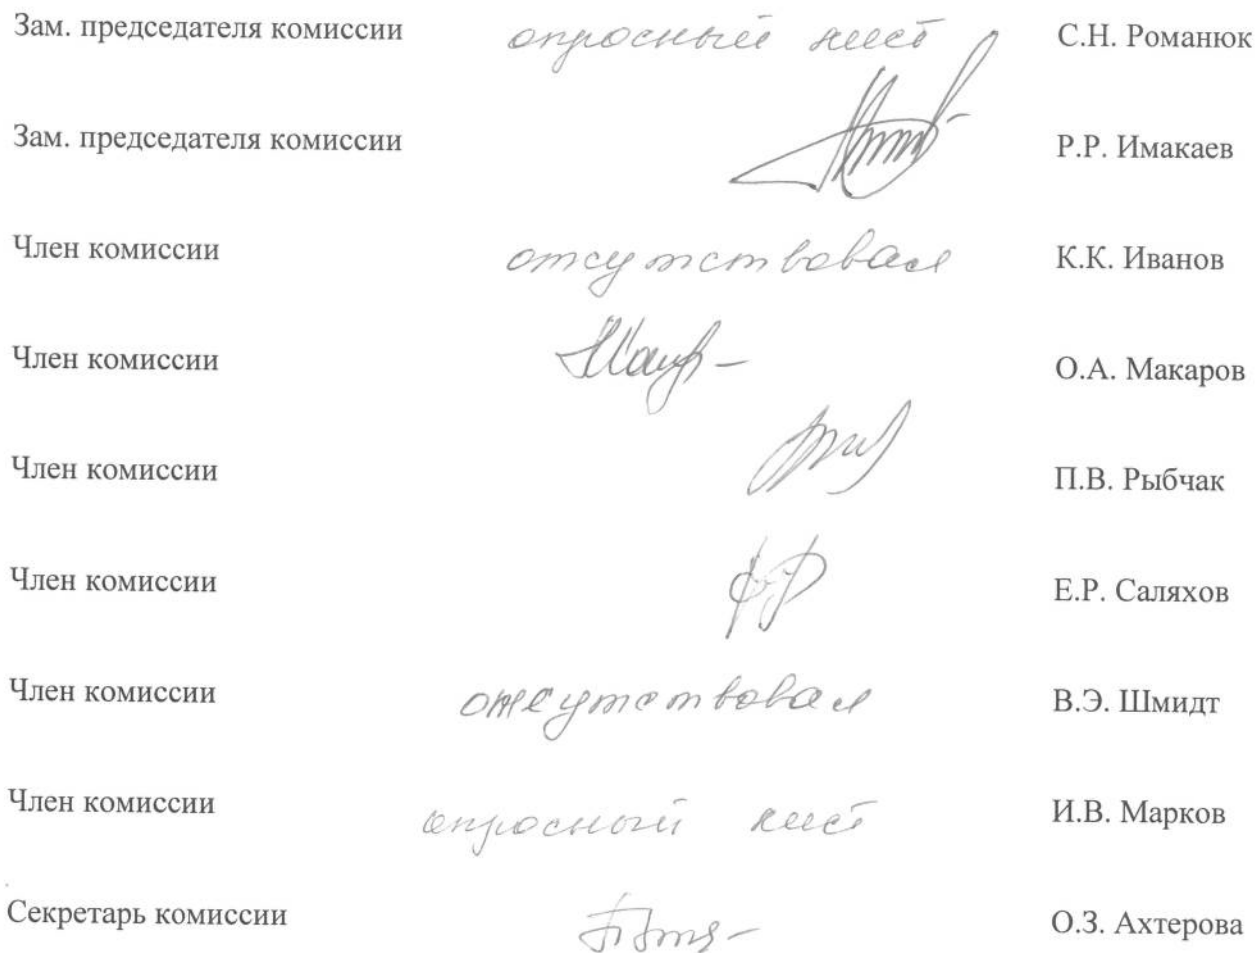 Зам. председателя комиссии опросный лист С.Н. Романюк
Зам. председателя комиссии Р.Р. Имакаев
Член комиссии отсутствовал К.К. Иванов
Член комиссии О.А. Макаров
Член комиссии П.В. Рыбчак
Член комиссии Е.Р. Саляхов
Член комиссии отсутствовал В.Э. Шмидт
Член комиссии опросный лист И.В. Марков
Секретарь комиссии О.З. Ахтерова